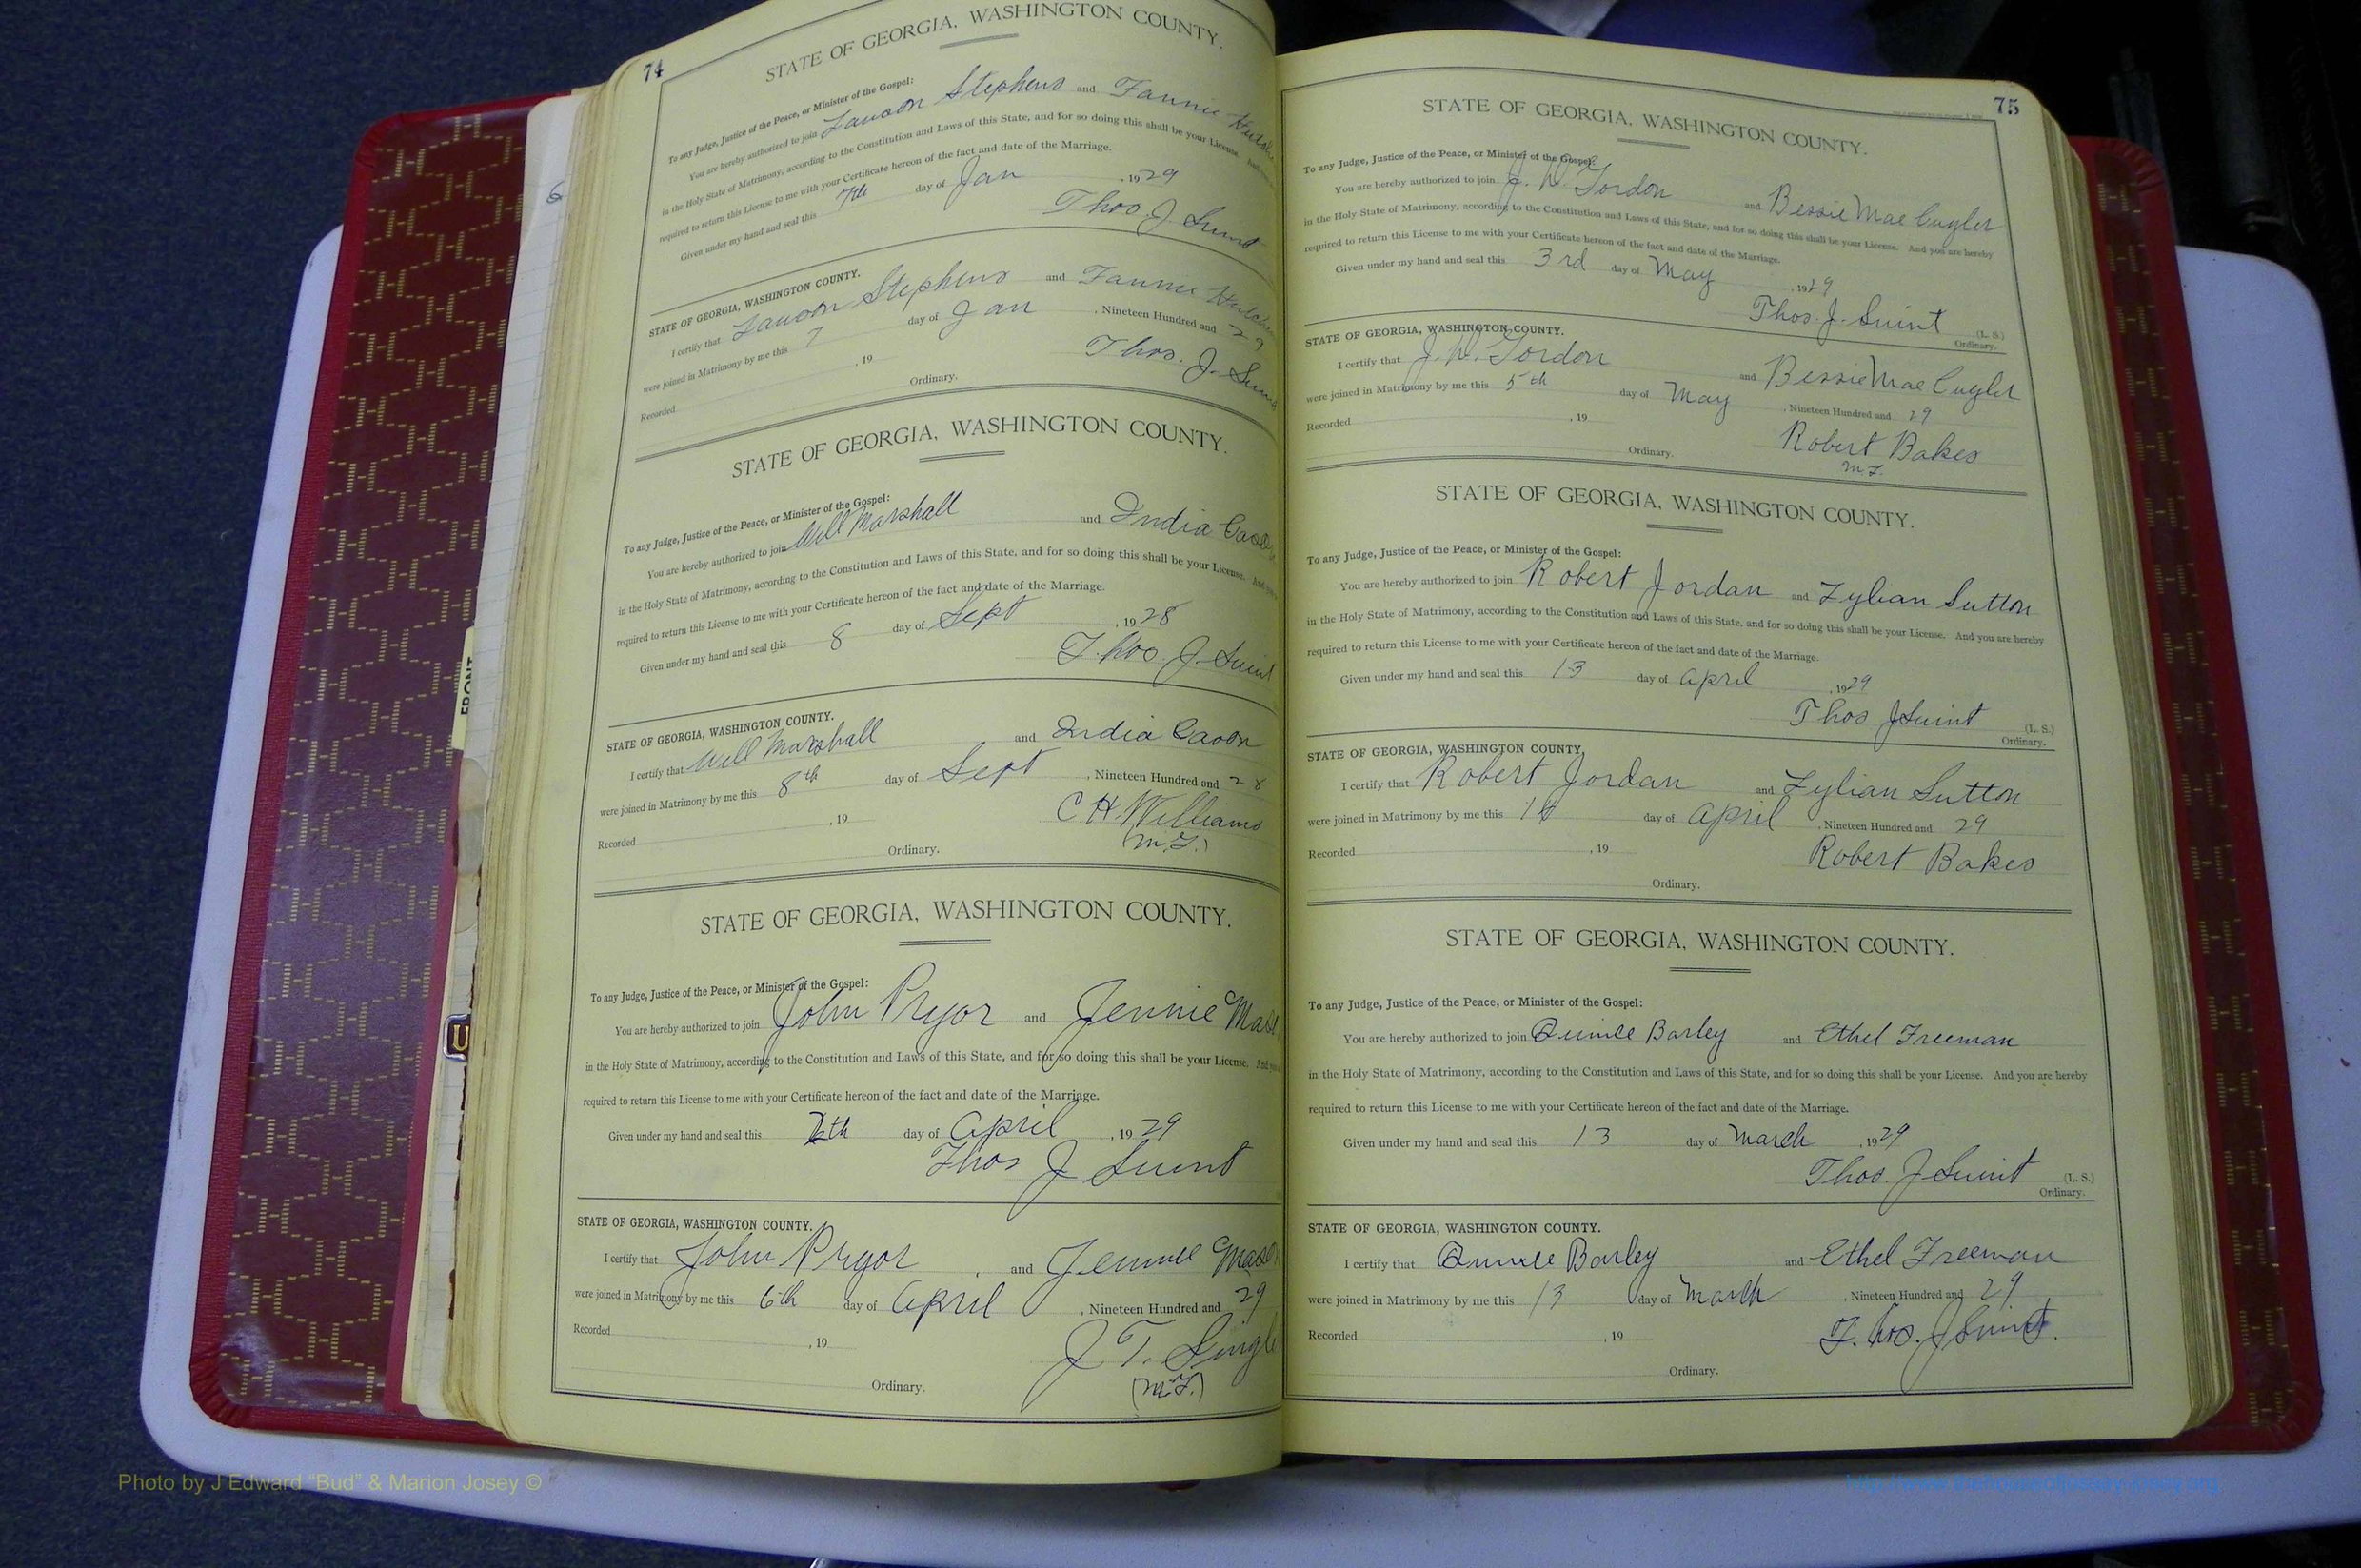 74
STATE OF GEORGIA, WASHINGTON COUNTY.
To any Judge, Justice of the Peace, or Minister of the Gospel:
You are hereby authorized to join Stephens and Fannie
in the Holy State of Matrimony, according to the Constitution and Laws of this State, and for so doing this shall be your License. And
required to return this License to me with your Certificate hereon of the fact and date of the Marriage.
Given under my hand and seal this 7th day of Jan , 1929
Thos. J. Swint
STATE OF GEORGIA, WASHINGTON COUNTY.
I certify that Stephens and Fannie
were joined in Matrimony by me this 7 day of Jan , Nineteen Hundred and 29
Recorded , 19 Thos. J.
Ordinary.
STATE OF GEORGIA, WASHINGTON COUNTY.
To any Judge, Justice of the Peace, or Minister of the Gospel:
You are hereby authorized to join Will Marshall and India
in the Holy State of Matrimony, according to the Constitution and Laws of this State, and for so doing this shall be your License. And
required to return this License to me with your Certificate hereon of the fact and date of the Marriage.
Given under my hand and seal this 8 day of Sept , 1928
Thos. J. Swint
STATE OF GEORGIA, WASHINGTON COUNTY.
I certify that Will Marshall and India Cason
were joined in Matrimony by me this 8th day of Sept , Nineteen Hundred and 28
Recorded , 19 C H. Williams
Ordinary. (M.G.)
STATE OF GEORGIA, WASHINGTON COUNTY.
To any Judge, Justice of the Peace, or Minister of the Gospel:
You are hereby authorized to join John Pryor and Jennie
in the Holy State of Matrimony, according to the Constitution and Laws of this State, and for so doing this shall be your License. And
required to return this License to me with your Certificate hereon of the fact and date of the Marriage.
Given under my hand and seal this 6th day of April , 1929
Thos J Swint
STATE OF GEORGIA, WASHINGTON COUNTY.
I certify that John Pryor and Jennie Mason
were joined in Matrimony by me this 6th day of April , Nineteen Hundred and 29
Recorded , 19 J T.
Ordinary. (M.G.)
75
STATE OF GEORGIA, WASHINGTON COUNTY.
To any Judge, Justice of the Peace, or Minister of the Gospel:
You are hereby authorized to join J. W. Gordon and Bessie Mae Cuyler
in the Holy State of Matrimony, according to the Constitution and Laws of this State, and for so doing this shall be your License. And you are hereby
required to return this License to me with your Certificate hereon of the fact and date of the Marriage.
Given under my hand and seal this 3rd day of May , 1929
Thos. J. Swint (L. S.)
Ordinary.
STATE OF GEORGIA, WASHINGTON COUNTY.
I certify that J. W. Gordon and Bessie Mae Cuyler
were joined in Matrimony by me this 5th day of May , Nineteen Hundred and 29
Recorded , 19 Robert Bakes
Ordinary. M.G.
STATE OF GEORGIA, WASHINGTON COUNTY.
To any Judge, Justice of the Peace, or Minister of the Gospel:
You are hereby authorized to join Robert Jordan and Zylian Sutton
in the Holy State of Matrimony, according to the Constitution and Laws of this State, and for so doing this shall be your License. And you are hereby
required to return this License to me with your Certificate hereon of the fact and date of the Marriage.
Given under my hand and seal this 13 day of April , 1929
Thos J Swint (L. S.)
Ordinary.
STATE OF GEORGIA, WASHINGTON COUNTY.
I certify that Robert Jordan and Zylian Sutton
were joined in Matrimony by me this day of April , Nineteen Hundred and 29
Recorded , 19 Robert Bakes
Ordinary.
STATE OF GEORGIA, WASHINGTON COUNTY.
To any Judge, Justice of the Peace, or Minister of the Gospel:
You are hereby authorized to join Barley and Ethel Freeman
in the Holy State of Matrimony, according to the Constitution and Laws of this State, and for so doing this shall be your License. And you are hereby
required to return this License to me with your Certificate hereon of the fact and date of the Marriage.
Given under my hand and seal this 13 day of March , 1929
Thos. J Swint (L. S.)
Ordinary.
STATE OF GEORGIA, WASHINGTON COUNTY.
I certify that Barley and Ethel Freeman
were joined in Matrimony by me this 13 day of March , Nineteen Hundred and 29
Recorded , 19 Thos. J Swint.
Ordinary.
FRONT
U
Photo by J Edward “Bud” & Marion Josey ©